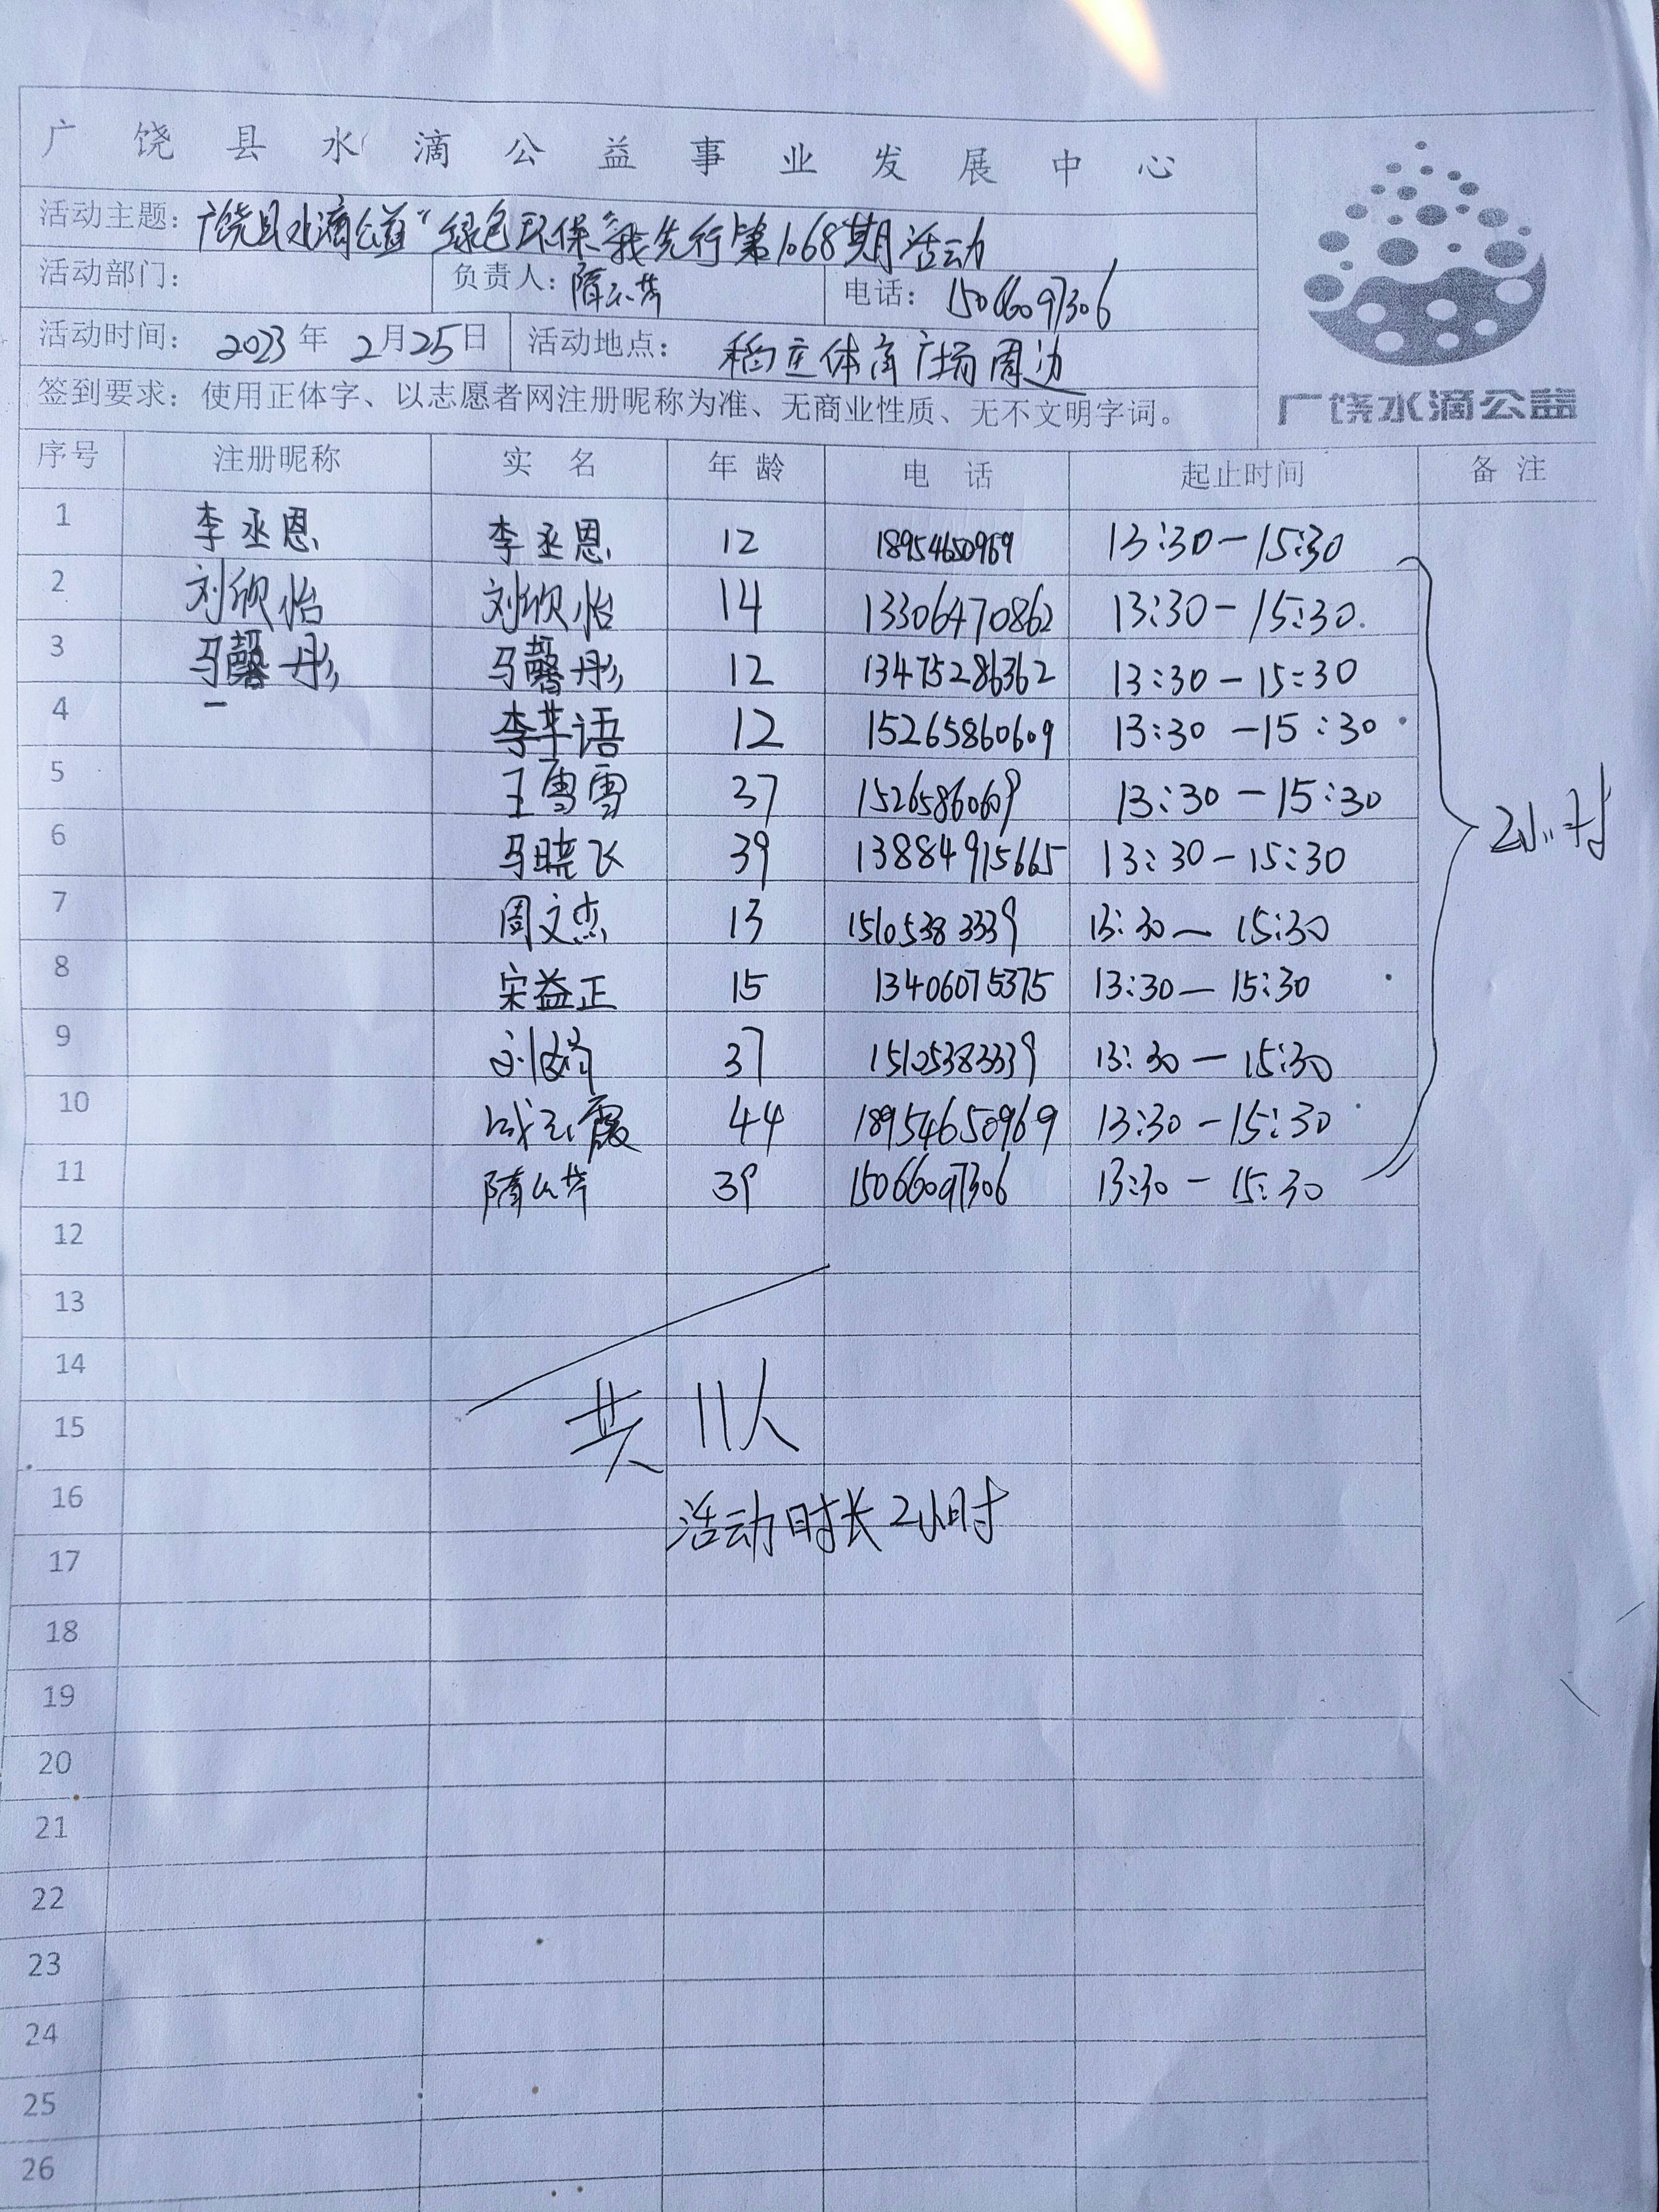 广饶县水滴公益事业发展中心
活动主题: 广饶县水滴公益“绿色环保”我先行第1068期活动
活动部门: 负责人: 隋云芳 电话: 15066097306
活动时间: 2023年 2月25日 活动地点: 稻庄体育广场周边
签到要求: 使用正体字、以志愿者网注册昵称为准、无商业性质、无不文明字词。
广饶水滴公益
序号 注册昵称 实名 年龄 电话 起止时间 备注
1 李丞恩 李丞恩 12 18954650969 13:30-15:30
2 刘欣怡 刘欣怡 14 13306470862 13:30-15:30.
3 马馨彤 马馨彤 12 13475286362 13:30-15:30
4 李芊语 12 15265860609 13:30-15:30
5 王雪雪 37 15265860609 13:30-15:30
2小时
6 马晓飞 39 13884915665 13:30-15:30
7 周文杰 13 15105383339 13:30-15:30
8 宋益正 15 13406075375 13:30-15:30
9 37 15105383339 13:30-15:30
10 成云霞 44 18954650969 13:30-15:30
11 隋云芳 39 15066097306 13:30-15:30
12
13
14
15 共11人
16 活动时长2小时
17
18
19
20
21
22
23
24
25
26